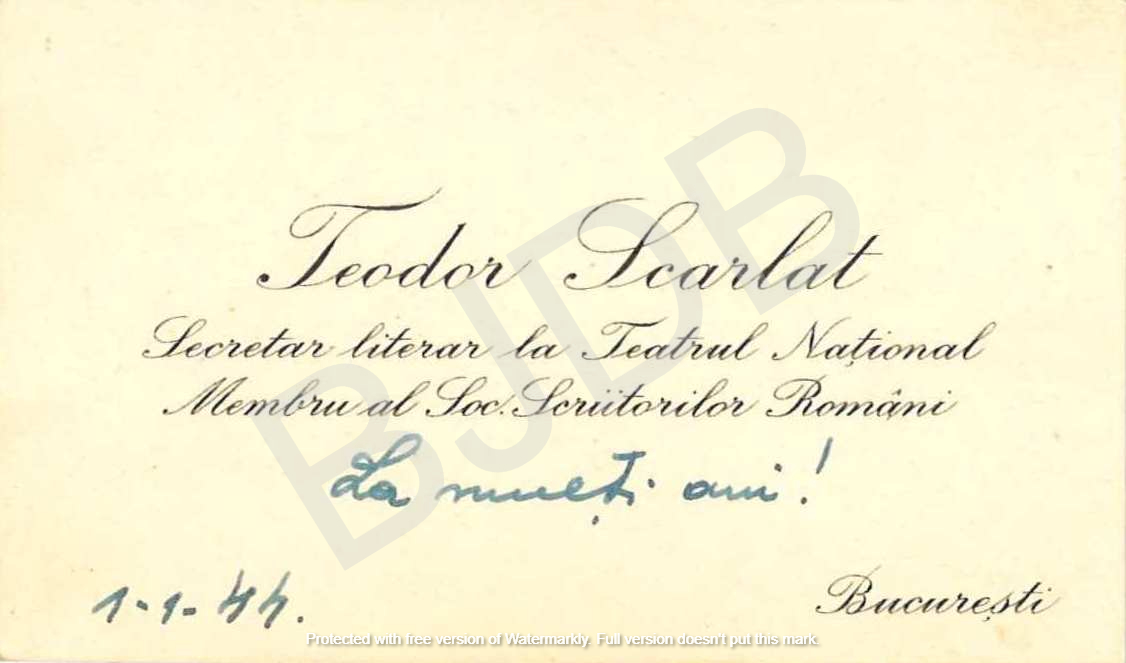 Teodor Scarlat
Secretar literar la Teatrul Național
Membru al Soc. Scriitorilor Români
La mulți ani!
1-1-44.
București
BJDB
Protected with free version of Watermarkly. Full version doesn't put this mark.